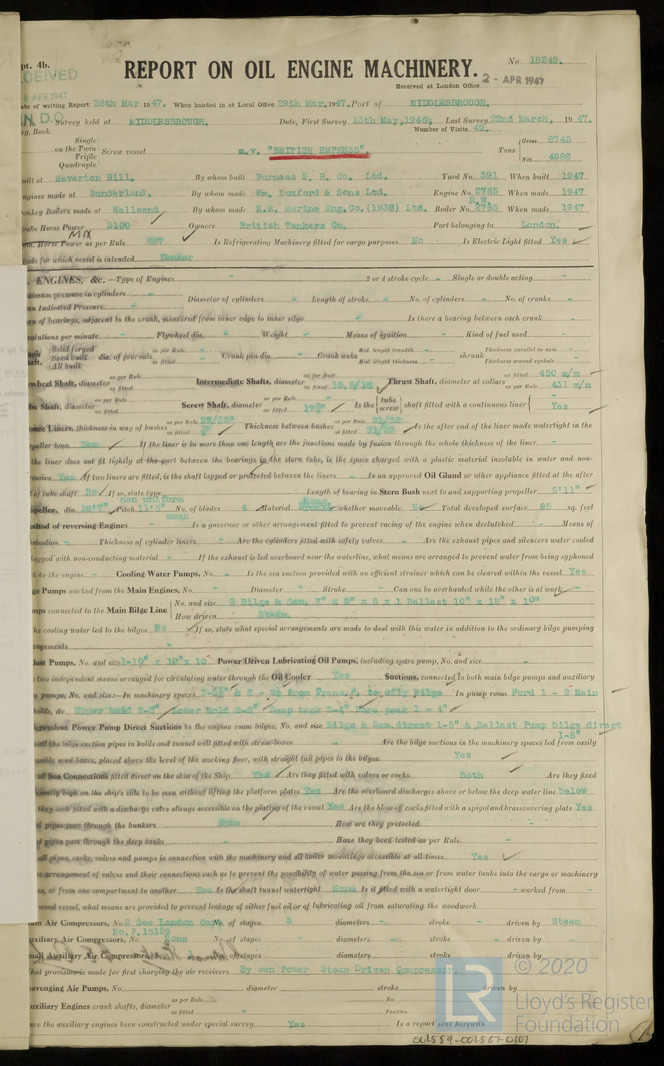 pt. 4b.
No. 18249.
REPORT ON OIL ENGINE MACHINERY.
2 - APR 1947
Received at London Office
ate of writing Report 26th Mar 1947. When handed in at Local Office 29th Mar. 1947. Port of MIDDLESBROUGH.
Survey held at MIDDLESBROUGH. Date, First Survey 13th May, 1946; Last Survey 22nd March, 1947.
eg. Book. Number of Visits 42.
on the Single Twin Triple Quadruple Screw vessel m.v. "BRITISH EMPRESS". Tons Gross 8745 Net 4988
uilt at Haverton Hill. By whom built Furness S. B. Co. Ltd. Yard No. 391 When built 1947
ngines made at Sunderland. By whom made Wm. Doxford & Sons Ltd. Engine No. 2765 When made 1947
onkey Boilers made at Wallsend By whom made N.E. Marine Eng. Co. (1938) Ltd. Boiler No. 2765 When made 1947
rake Horse Power 3100 Owners British Tankers Co. Port belonging to London.
om. Horse Power as per Rule 687 Is Refrigerating Machinery fitted for cargo purposes No Is Electric Light fitted Yes
rade for which vessel is intended Tanker
ENGINES, &c. —Type of Engines 2 or 4 stroke cycle Single or double acting
aximum pressure in cylinders Diameter of cylinders Length of stroke No. of cylinders No. of cranks
an Indicated Pressure
n of bearings, adjacent to the crank, measured from inner edge to inner edge Is there a bearing between each crank
volutions per minute Flywheel dia. Weight Means of ignition Kind of fuel used
Solid forged Semi built All built dia. of journals as per Rule as fitted Crank pin dia. Crank webs Mid. length breadth Mid. length thickness shrunk Thickness parallel to axis Thickness around eyehole
wheel Shaft, diameter as per Rule as fitted Intermediate Shafts, diameter as per Rule as fitted Thrust Shaft, diameter at collars as per Rule 450 m/m as fitted 451 m/m
be Shaft, diameter as per Rule as fitted Screw Shaft, diameter as per Rule as fitted Is the tube screw shaft fitted with a continuous liner Yes
onze Liners, thickness in way of bushes as per Rule as fitted Thickness between bushes as per Rule as fitted Is the after end of the liner made watertight in the
peller boss Yes If the liner is in more than one length are the junctions made by fusion through the whole thickness of the liner
the liner does not fit tightly at the part between the bearings in the stern tube, is the space charged with a plastic material insoluble in water and non-
rosive Yes If two liners are fitted, is the shaft lapped or protected between the liners Is an approved Oil Gland or other appliance fitted at the after
of tube shaft No If so, state type Length of bearing in Stern Bush next to and supporting propeller 5'11"
non uniform
peller, dia. 16'7" Pitch 11'5" mean No. of blades 4 Material whether moveable No Total developed surface 95 sq. feet
ethod of reversing Engines Is a governor or other arrangement fitted to prevent racing of the engine when declutched Means of
rication Thickness of cylinder liners Are the cylinders fitted with safety valves Are the exhaust pipes and silencers water cooled
lagged with non-conducting material If the exhaust is led overboard near the waterline, what means are arranged to prevent water from being syphoned
k to the engine Cooling Water Pumps, No. Is the sea suction provided with an efficient strainer which can be cleared within the vessel Yes
ge Pumps worked from the Main Engines, No. Diameter Stroke Can one be overhauled while the other is at work
mps connected to the Main Bilge Line No. and size 2 Bilge & San. 7" x 8" x 8 x 1 Ballast 10" x 12" x 10"
How driven Steam.
he cooling water led to the bilges No If so, state what special arrangements are made to deal with this water in addition to the ordinary bilge pumping
ngements
last Pumps, No. and size 1-10" x 12" x 10" Power Driven Lubricating Oil Pumps, including spare pump, No. and size
two independent means arranged for circulating water through the Oil Cooler Yes Suctions, connected to both main bilge pumps and auxiliary
pumps, No. and size:—In machinery spaces In pump room Ford 1 - 2 Main
holds, &c. Upper hold 2-3" Lower Hold 2-3" Deep tank 2-4" Fore peak 1 - 4"
ependent Power Pump Direct Suctions to the engine room bilges, No. and size Bilge & San. direct 1-5" & Ballast Pump bilge direct 1-8"
all the bilge suction pipes in holds and tunnel well fitted with strum-boxes Are the bilge suctions in the machinery spaces led from easily
ssible mud-boxes, placed above the level of the working floor, with straight tail pipes to the bilges Yes
all Sea Connections fitted direct on the skin of the Ship Yes Are they fitted with valves or cocks Both Are they fixed
ciently high on the ship's side to be seen without lifting the platform plates Yes Are the overboard discharges above or below the deep water line below
they each fitted with a discharge valve always accessible on the plating of the vessel Yes Are the blow off cocks fitted with a spigot and brass covering plate Yes
t pipes pass through the bunkers None How are they protected
t pipes pass through the deep tanks Have they been tested as per Rule
all pipes, cocks, valves and pumps in connection with the machinery and all boiler mountings accessible at all times Yes
arrangement of valves and their connections such as to prevent the possibility of water passing from the sea or from water tanks into the cargo or machinery
es, or from one compartment to another Yes Is the shaft tunnel watertight None Is it fitted with a watertight door worked from
wood vessel, what means are provided to prevent leakage of either fuel oil or of lubricating oil from saturating the woodwork
ain Air Compressors, No. No. of stages 3 diameters stroke driven by Steam
uxiliary Air Compressors, No. None No. of stages diameters stroke driven by
mall Auxiliary Air Compressors, No. of stages diameters stroke driven by
hat provision is made for first charging the air receivers By own Power Steam Driven Compressor.
cavenging Air Pumps, No. diameter stroke driven by
uxiliary Engines crank shafts, diameter as per Rule as fitted No. Position
ave the auxiliary engines been constructed under special survey Yes Is a report sent herewith
© 2020
LR
Lloyd's Register
Foundation
002559-002567-0101